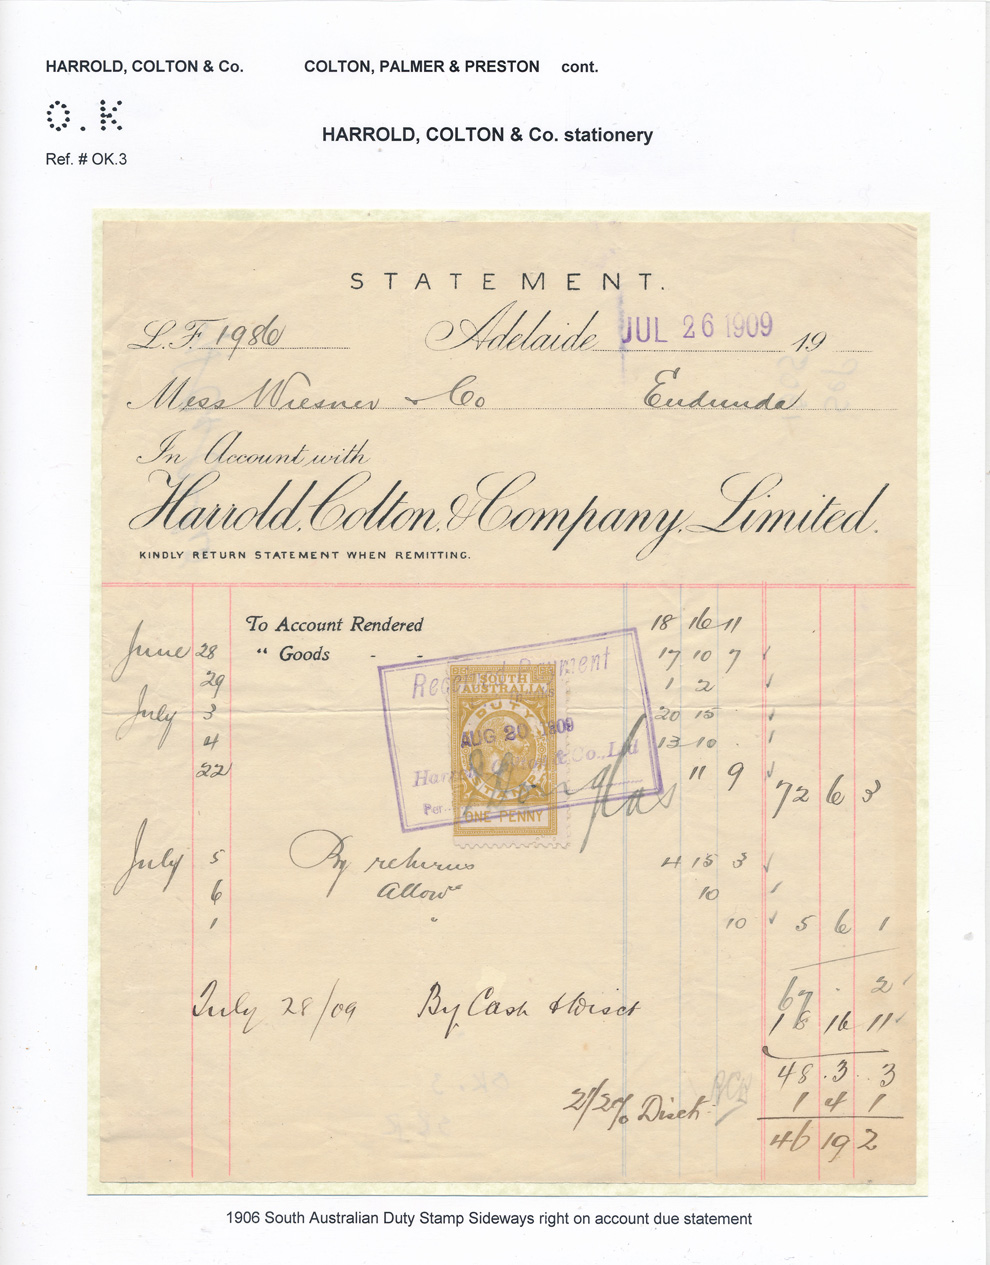 HARROLD, COLTON & Co. COLTON, PALMER & PRESTON cont.
O.K
Ref. # OK.3
HARROLD, COLTON & Co. stationery
STATEMENT.
L.F. 1986 Adelaide JUL 26 1909 19
Mess Wiesner & Co Eudunda
In Account with
Harrold, Colton, & Company, Limited.
KINDLY RETURN STATEMENT WHEN REMITTING.
To Account Rendered 18 16 11
June 28 " Goods - - 17 10 7
29 1 2
July 3 20 15
4 13 10
22 11 9 72 6 3
Received Payment
SOUTH AUSTRALIA
DUTY
AUG 20 1909
Harrold Colton & Co., Ltd
STAMP
Per.
ONE PENNY
July 5 By returns 4 15 3
6 Allowce 10
1 " 10 5 6 1
67 . 2
July 28/09 By Cash & Disct 18 16 11
48 . 3 . 3
2 1/2 % Disct 1 4 1
46 19 2
OK.3
1906 South Australian Duty Stamp Sideways right on account due statement